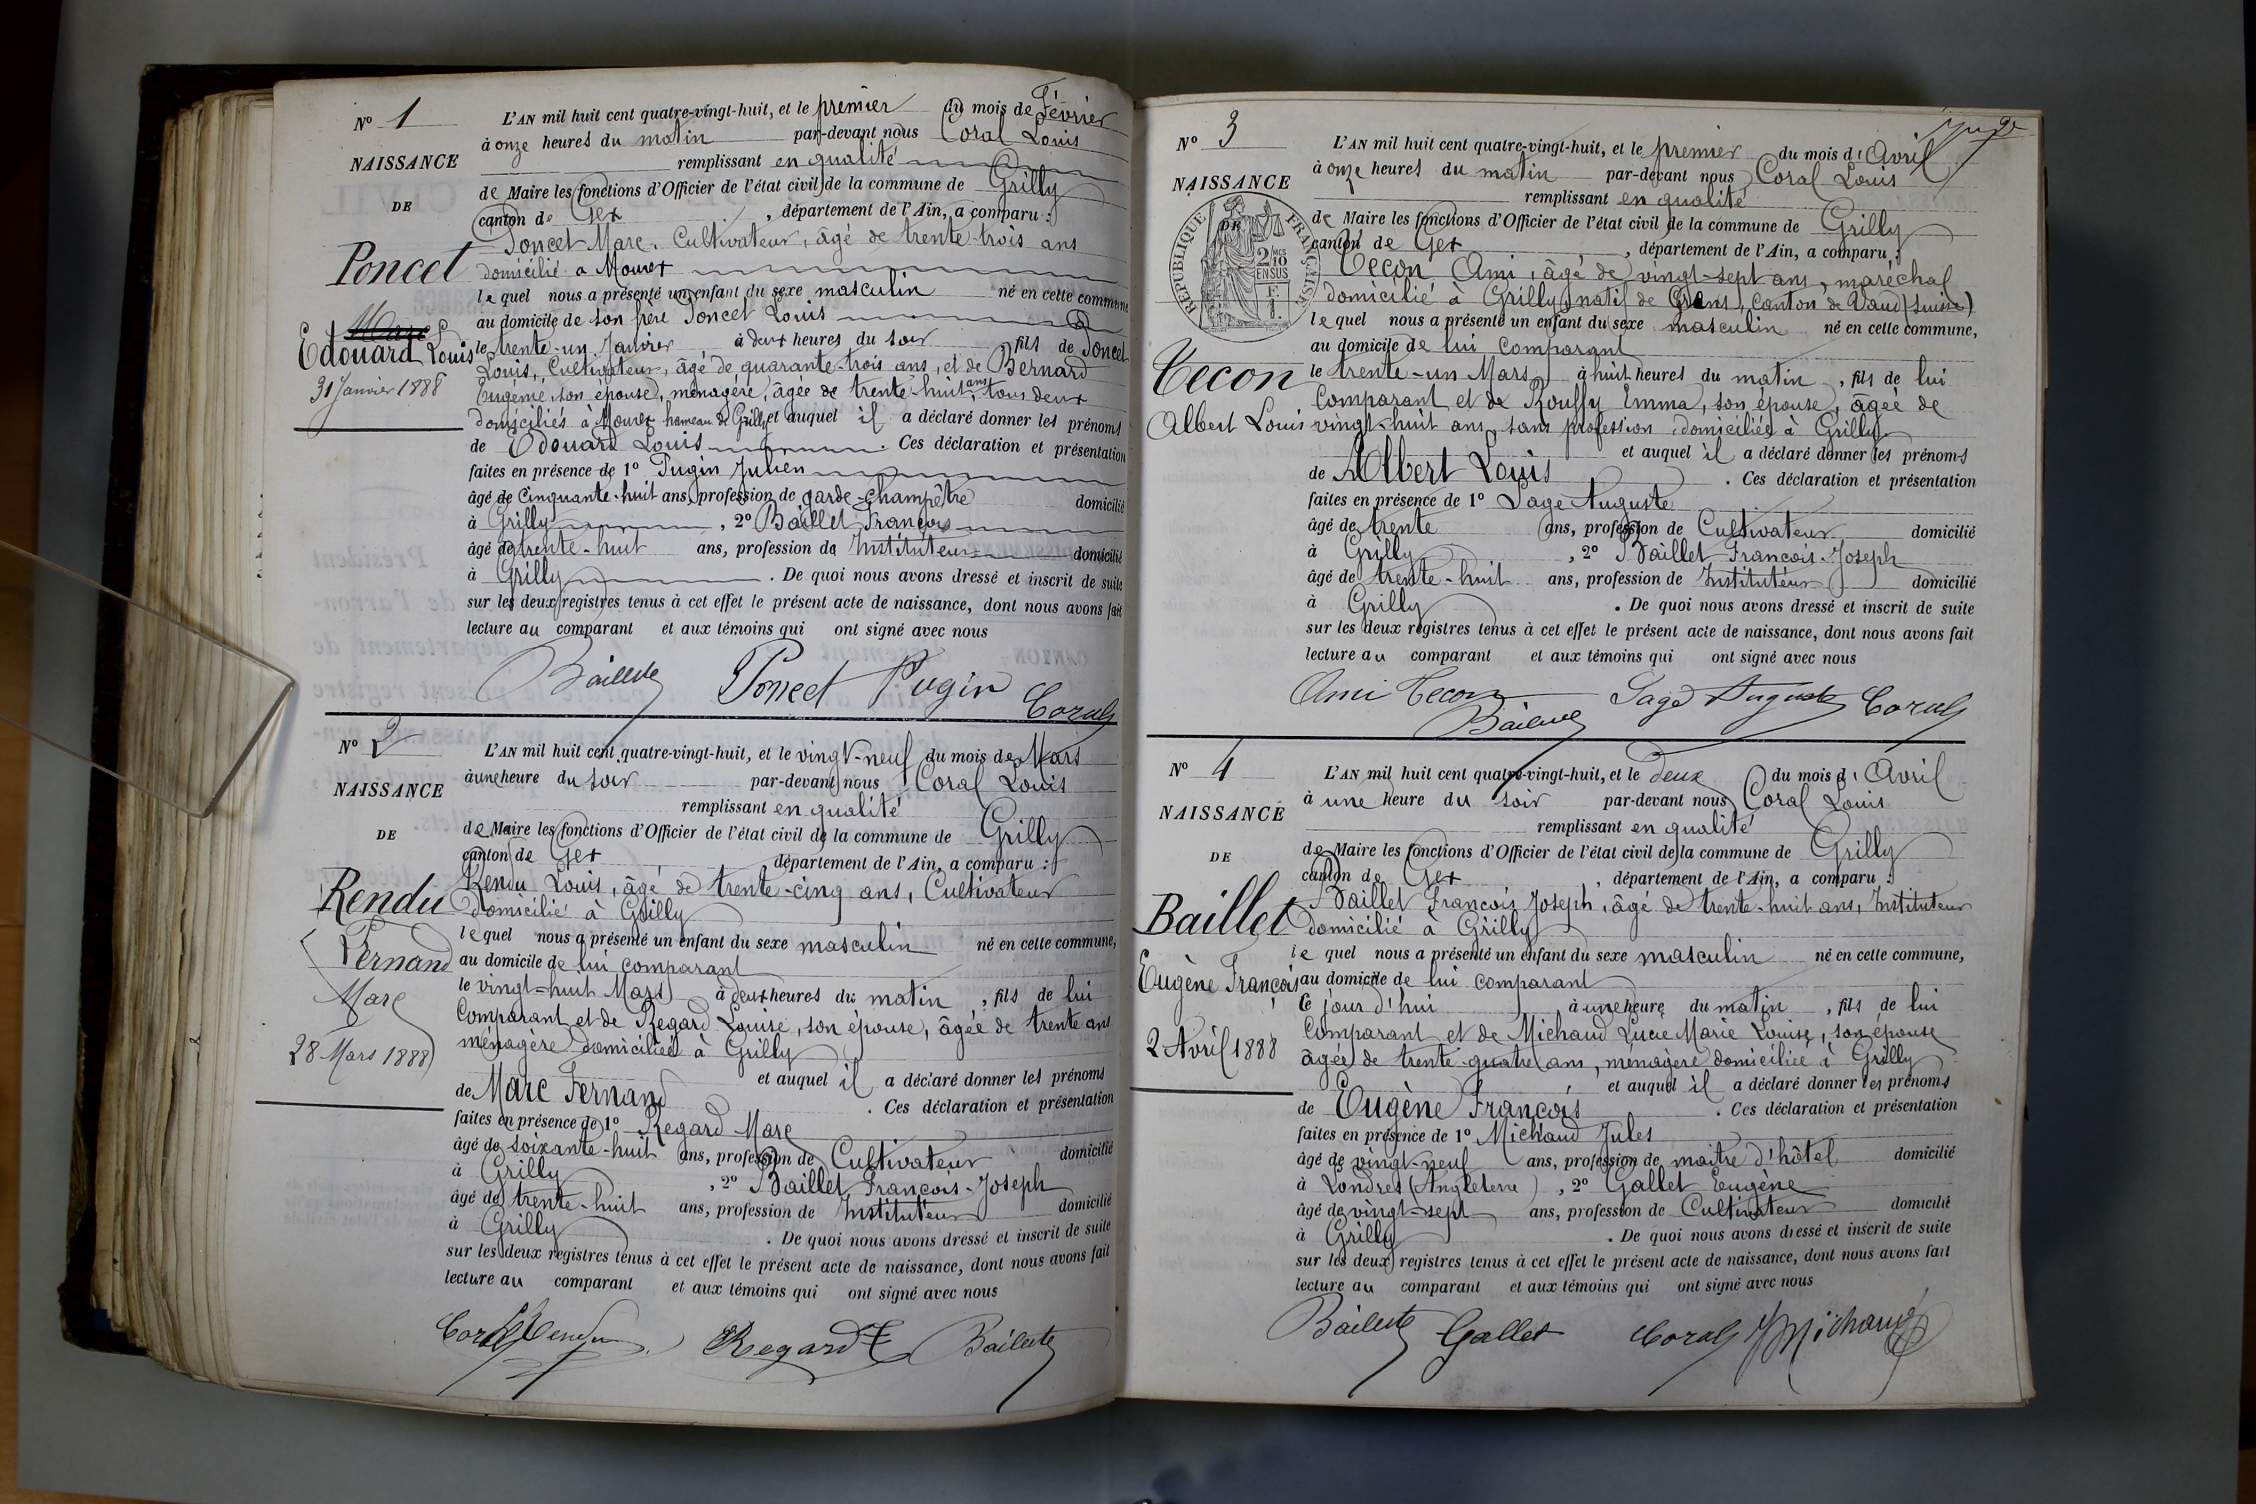 N° 1
NAISSANCE
DE
Poncet
Marc
Edouard Louis
31 Janvier 1888
L'AN mil huit cent quatre-vingt-huit, et le premier du mois de Février
à onze heures du matin par-devant nous Coral Louis
remplissant en qualité
de Maire les fonctions d'Officier de l'état civil de la commune de Grilly
canton de Gex, département de l'Ain, a comparu :
Poncet Marc, Cultivateur, âgé de trente-trois ans
domicilié à Mourex
lequel nous a présenté un enfant du sexe masculin né en cette commune
au domicile de son frère Poncet Louis
le trente-un Janvier à deux heures du soir fils de Poncet
Louis, Cultivateur, âgé de quarante-trois ans, et de Bernard
Eugénie, son épouse, ménagère, âgée de trente-huit ans, tous deux
domiciliés à Mourex hameau de Grilly et auquel il a déclaré donner les prénoms
de Edouard Louis. Ces déclaration et présentation
faites en présence de 1° Pugin Julien
âgé de Cinquante-huit ans, profession de garde-champêtre domicilié
à Grilly, 2° Baillet François
âgé de trente-huit ans, profession de Instituteur domicilié
à Grilly. De quoi nous avons dressé et inscrit de suite
sur les deux registres tenus à cet effet le présent acte de naissance, dont nous avons fait
lecture au comparant et aux témoins qui ont signé avec nous
Baillet Poncet Pugin Coral
N° 2
NAISSANCE
DE
Rendu
Fernand
Marc
28 Mars 1888
L'AN mil huit cent quatre-vingt-huit, et le vingt-neuf du mois de Mars
à une heure du soir par-devant nous Coral Louis
remplissant en qualité
de Maire les fonctions d'Officier de l'état civil de la commune de Grilly
canton de Gex département de l'Ain, a comparu :
Rendu Louis, âgé de trente-cinq ans, Cultivateur
domicilié à Grilly
lequel nous a présenté un enfant du sexe masculin né en cette commune,
au domicile de lui comparant
le vingt-huit Mars à deux heures du matin, fils de lui
Comparant et de Regard Louise, son épouse, âgée de trente ans
ménagère domiciliée à Grilly
et auquel il a déclaré donner les prénoms
de Marc Fernand. Ces déclaration et présentation
faites en présence de 1° Regard Marc
âgé de soixante-huit ans, profession de Cultivateur domicilié
à Grilly, 2° Baillet François-Joseph
âgé de trente-huit ans, profession de Instituteur domicilié
à Grilly. De quoi nous avons dressé et inscrit de suite
sur les deux registres tenus à cet effet le présent acte de naissance, dont nous avons fait
lecture au comparant et aux témoins qui ont signé avec nous
Coral Rendu Regard Baillet
N° 3
NAISSANCE
DE
RÉPUBLIQUE FRANÇAISE
2/10
EN SUS
Tecon
Albert Louis
L'AN mil huit cent quatre-vingt-huit, et le premier du mois d'Avril
à onze heures du matin par-devant nous Coral Louis
remplissant en qualité
de Maire les fonctions d'Officier de l'état civil de la commune de Grilly
canton de Gex, département de l'Ain, a comparu :
Tecon Ami, âgé de vingt-sept ans, maréchal
domicilié à Grilly, natif de Grens, Canton de Vaud (Suisse)
lequel nous a présenté un enfant du sexe masculin né en cette commune,
au domicile de lui comparant
le trente-un Mars à huit heures du matin, fils de lui
Comparant et de Rouffy Emma, son épouse, âgée de
vingt-huit ans, sans profession domiciliée à Grilly
et auquel il a déclaré donner les prénoms
de Albert Louis. Ces déclaration et présentation
faites en présence de 1° Sage Auguste
âgé de trente ans, profession de Cultivateur domicilié
à Grilly, 2° Baillet François-Joseph
âgé de trente-huit ans, profession de Instituteur domicilié
à Grilly. De quoi nous avons dressé et inscrit de suite
sur les deux registres tenus à cet effet le présent acte de naissance, dont nous avons fait
lecture au comparant et aux témoins qui ont signé avec nous
Ami Tecon Sage Auguste Coral
Baillet
N° 4
NAISSANCE
DE
Baillet
Eugène François
2 Avril 1888
L'AN mil huit cent quatre-vingt-huit, et le deux du mois d'Avril
à une heure du soir par-devant nous Coral Louis
remplissant en qualité
de Maire les fonctions d'Officier de l'état civil de la commune de Grilly
canton de Gex, département de l'Ain, a comparu :
Baillet François Joseph, âgé de trente-huit ans, Instituteur
domicilié à Grilly
lequel nous a présenté un enfant du sexe masculin né en cette commune,
au domicile de lui comparant
Ce jour d'hui à une heure du matin, fils de lui
Comparant et de Michaud Lucie Marie Louise, son épouse
âgée de trente-quatre ans, ménagère domiciliée à Grilly
et auquel il a déclaré donner les prénoms
de Eugène François. Ces déclaration et présentation
faites en présence de 1° Michaud Jules
âgé de vingt-neuf ans, profession de maître d'hôtel domicilié
à Londres (Angleterre), 2° Gallet Eugène
âgé de vingt-sept ans, profession de Cultivateur domicilié
à Grilly. De quoi nous avons dressé et inscrit de suite
sur les deux registres tenus à cet effet le présent acte de naissance, dont nous avons fait
lecture au comparant et aux témoins qui ont signé avec nous
Baillet Gallet Coral Michaud